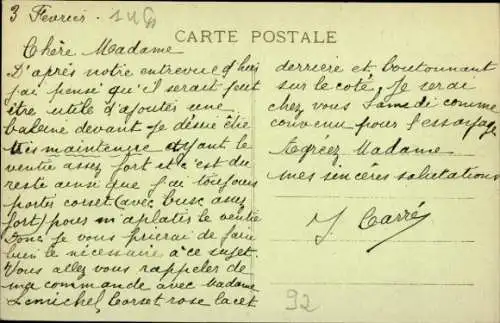 3 Février.
CARTE POSTALE
Chère Madame
D'après notre entrevue d'hier
j'ai pensé qu'il serait peut
être utile d'ajouter une
baleine devant Je désire être
très maintenue ayant le
ventre assez fort et c'est du
reste ainsi que j'ai toujours
portés corset (avec busc assez
fort) pour m'aplatir le ventre
Donc je vous prierai de faire
bien le nécessaire à ce sujet.
Vous allez vous rappeler de
ma commande avec Madame
Lemichel, Corset rose lacet
derrière et boutonnant
sur le coté, Je serai
chez vous Samedi comme
convenu pour l'essayage
Agréez Madame
mes sincères salutations
J. Carré
92